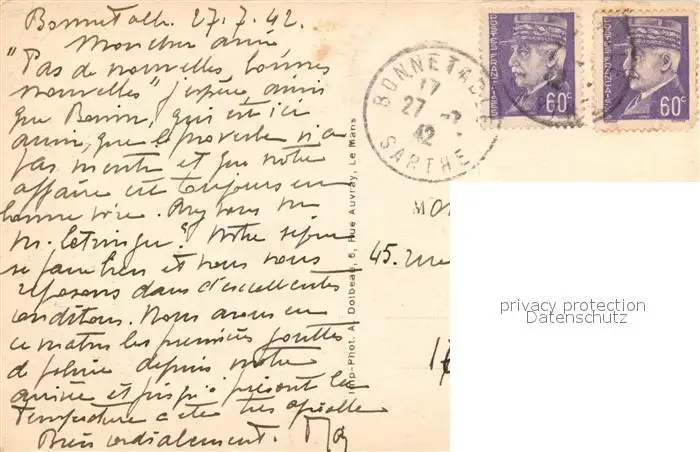 Bonnetable. 27.7.42.
Mon cher ami
"Pas de nouvelles bonnes
nouvelles" j'espère ainsi
que qui est ici
aussi, que le proverbe n'a
pas menti et que notre
affaire est toujours en
bonne voie. Avez vous vu
M. ? Notre séjour
se passe bien et nous nous
reposons dans d'excellentes
conditions. Nous avons eu
ce matin les premières gouttes
de pluie depuis notre
arrivée et jusqu'à présent la
température a été très agréable
Bien cordialement.
Imp-Phot. A. Dolbeau, 6, Rue Auvray, Le Mans
BONNETABLE
17
27 -7
42
SARTHE
POSTES FRANÇAISES
60c
POSTES FRANÇAISES
60c
45. rue
privacy protection
Datenschutz